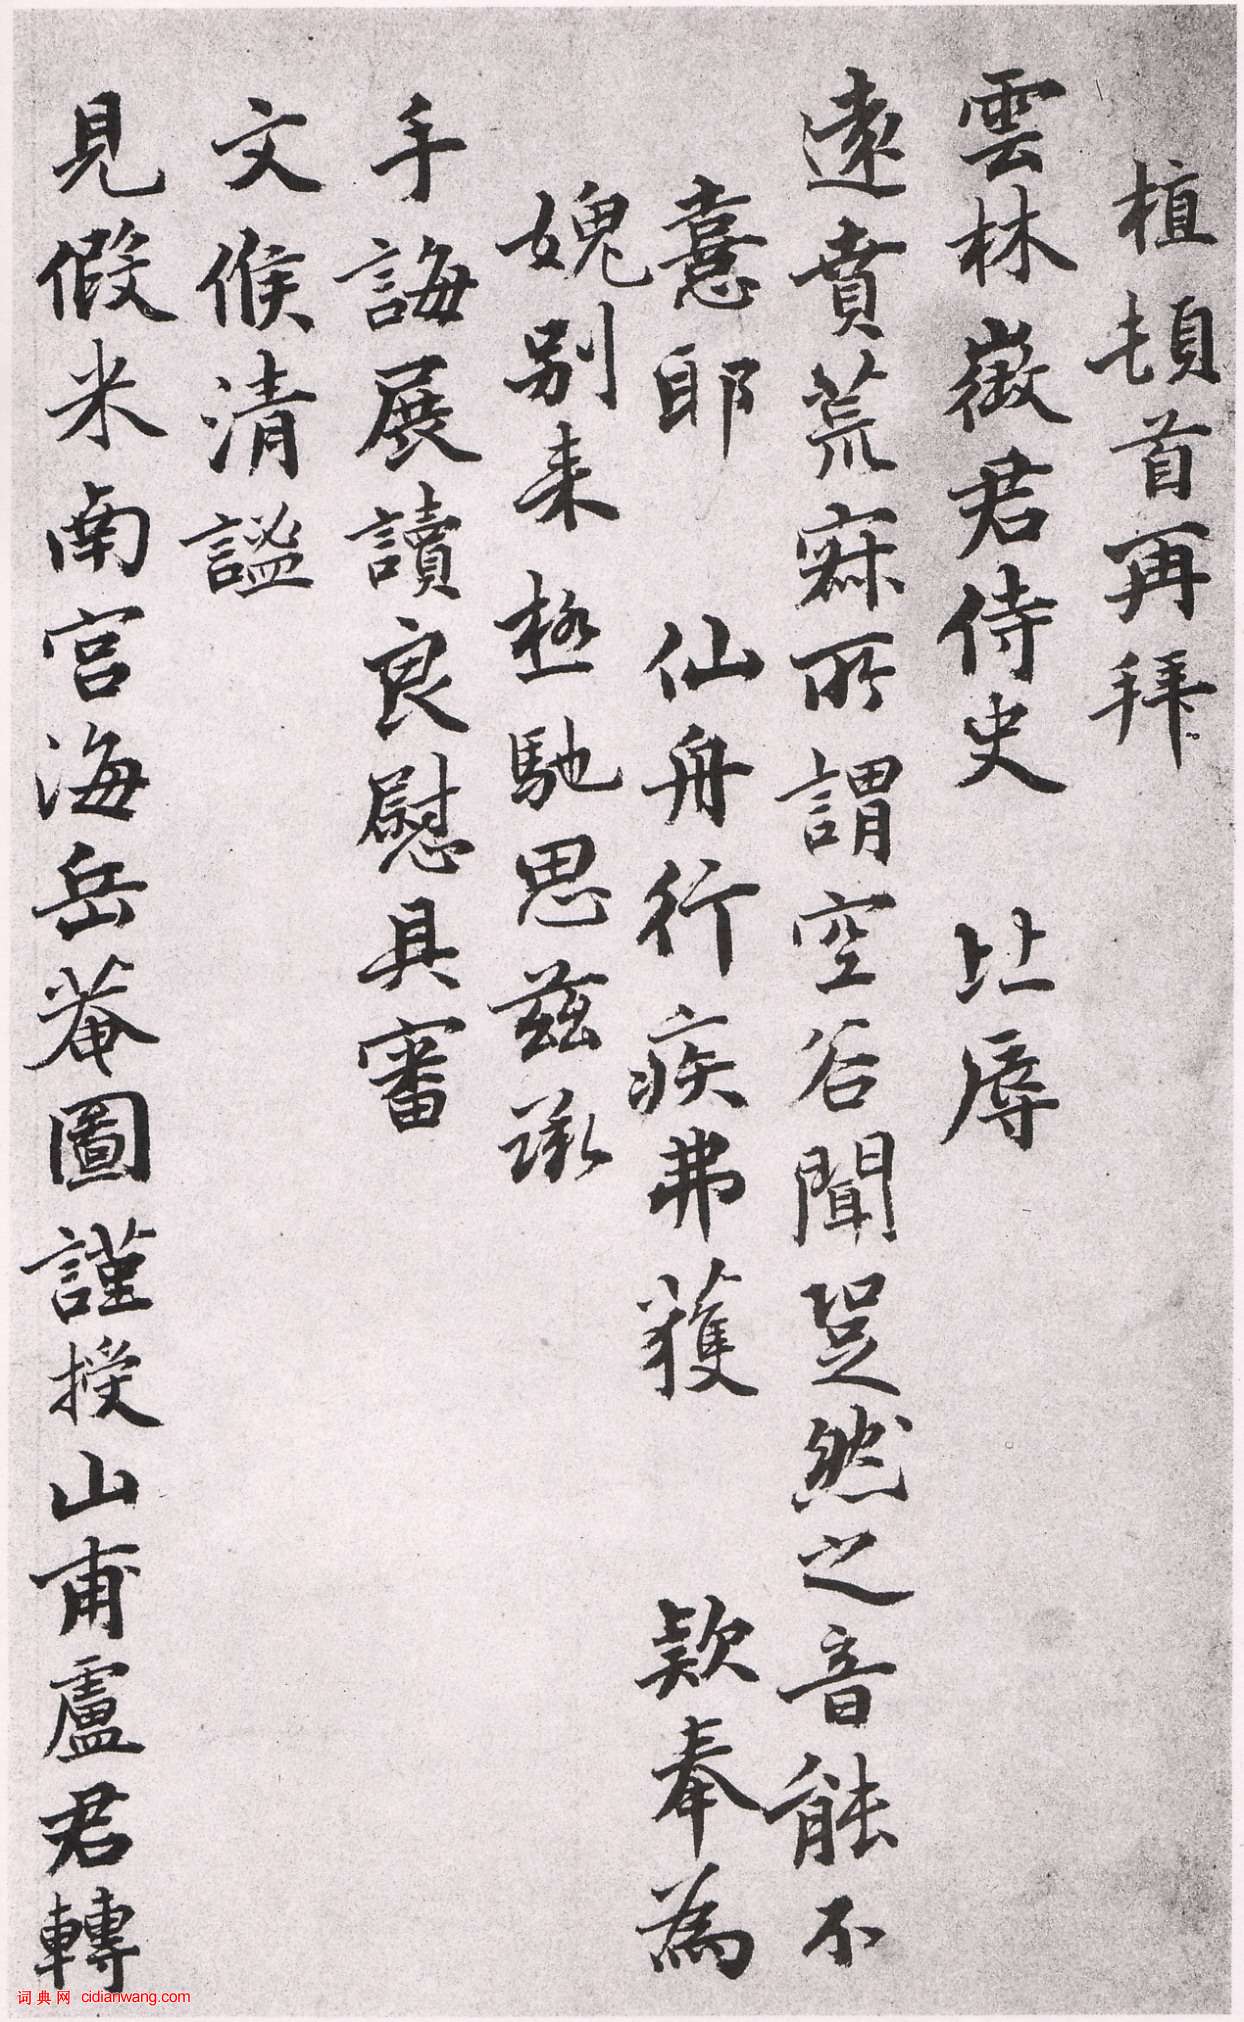 植頓首再拜
雲林徵君侍史 比辱
遠賁荒寐所謂空谷聞跫然之音能不
憙耶 仙舟行疾弗獲 款奉為
媿别来極馳思兹承
手誨展讀良慰具審
文候清謐
見假米南宮海岳菴圖謹授山甫盧君轉
词典网 cidianwang.com